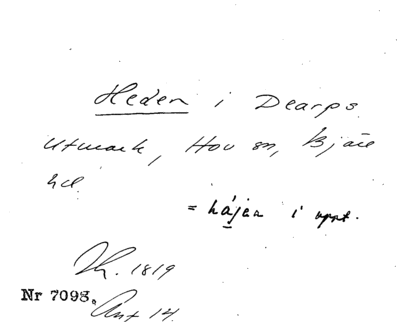 Heden i Dearps
utmark, Hov sn, Bjäre
hd.
= håjen i uppt.
Th. 1819
Nr 7098.
Ant 14.